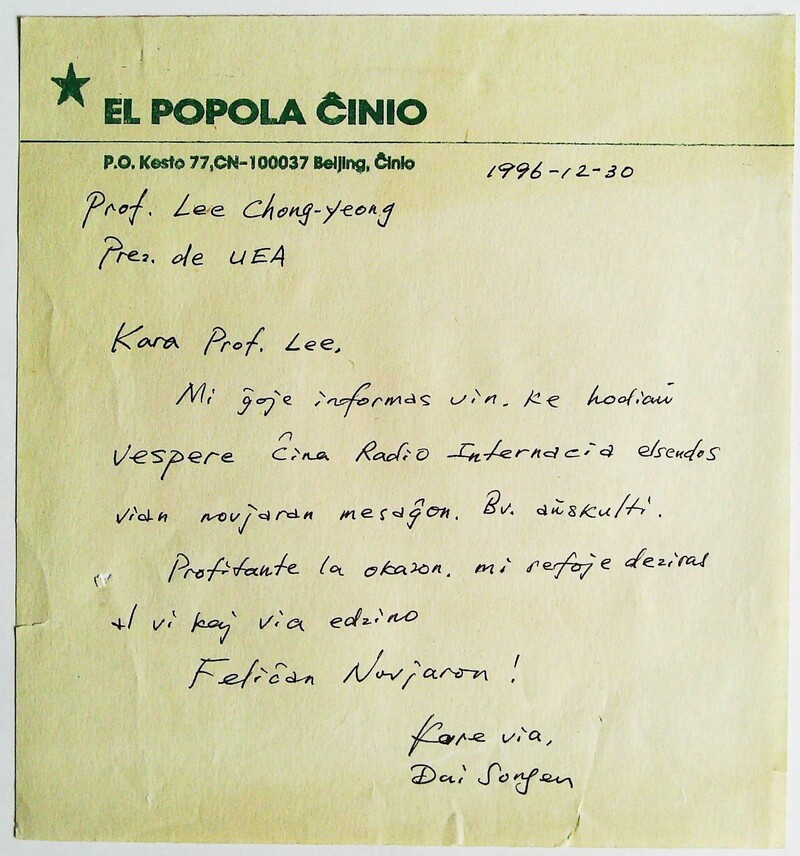 EL POPOLA ĈINIO
P.O. Kesto 77,CN-100037 Beijing, Ĉinio
1996-12-30
Prof. Lee Chong-yeong
Prez. de UEA
Kara Prof. Lee,
Mi ĝoje informas vin, ke hodiaŭ
vespere Ĉina Radio Internacia elsendos
vian novjaran mesaĝon. Bv. aŭskulti.
Profitante la okazon, mi refoje deziras
al vi kaj via edzino
Feliĉan Novjaron !
Kare via,
Dai Songen